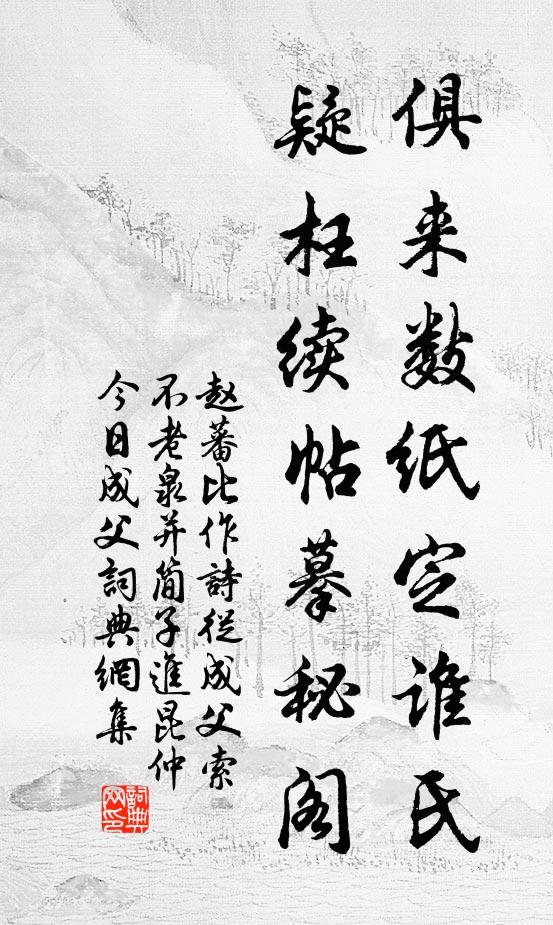 俱来数纸定谁氏
疑枉续帖摹秘阁
赵蕃比作詩従成父索
不老泉并简子進昆仲
今日成父詞典網集
詞典网印